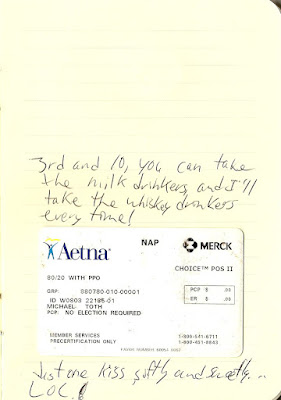 3rd and 10, you can take
the milk drinkers, and I'll
take the whiskey drinkers
every time!
Aetna
NAP
MERCK
CHOICE™ POS II
80/20 WITH PPO
GRP: 080780-010-00001
ID W0803 22185-01
MICHAEL TOTH
PCP: NO ELECTION REQUIRED
PCP $ .00
ER $ .00
MEMBER SERVICES 1-800-541-6711
PRECERTIFICATION ONLY 1-800-451-8843
PAYOR NUMBER 60054 0057
Just one kiss softly and sweetly...
LOC.